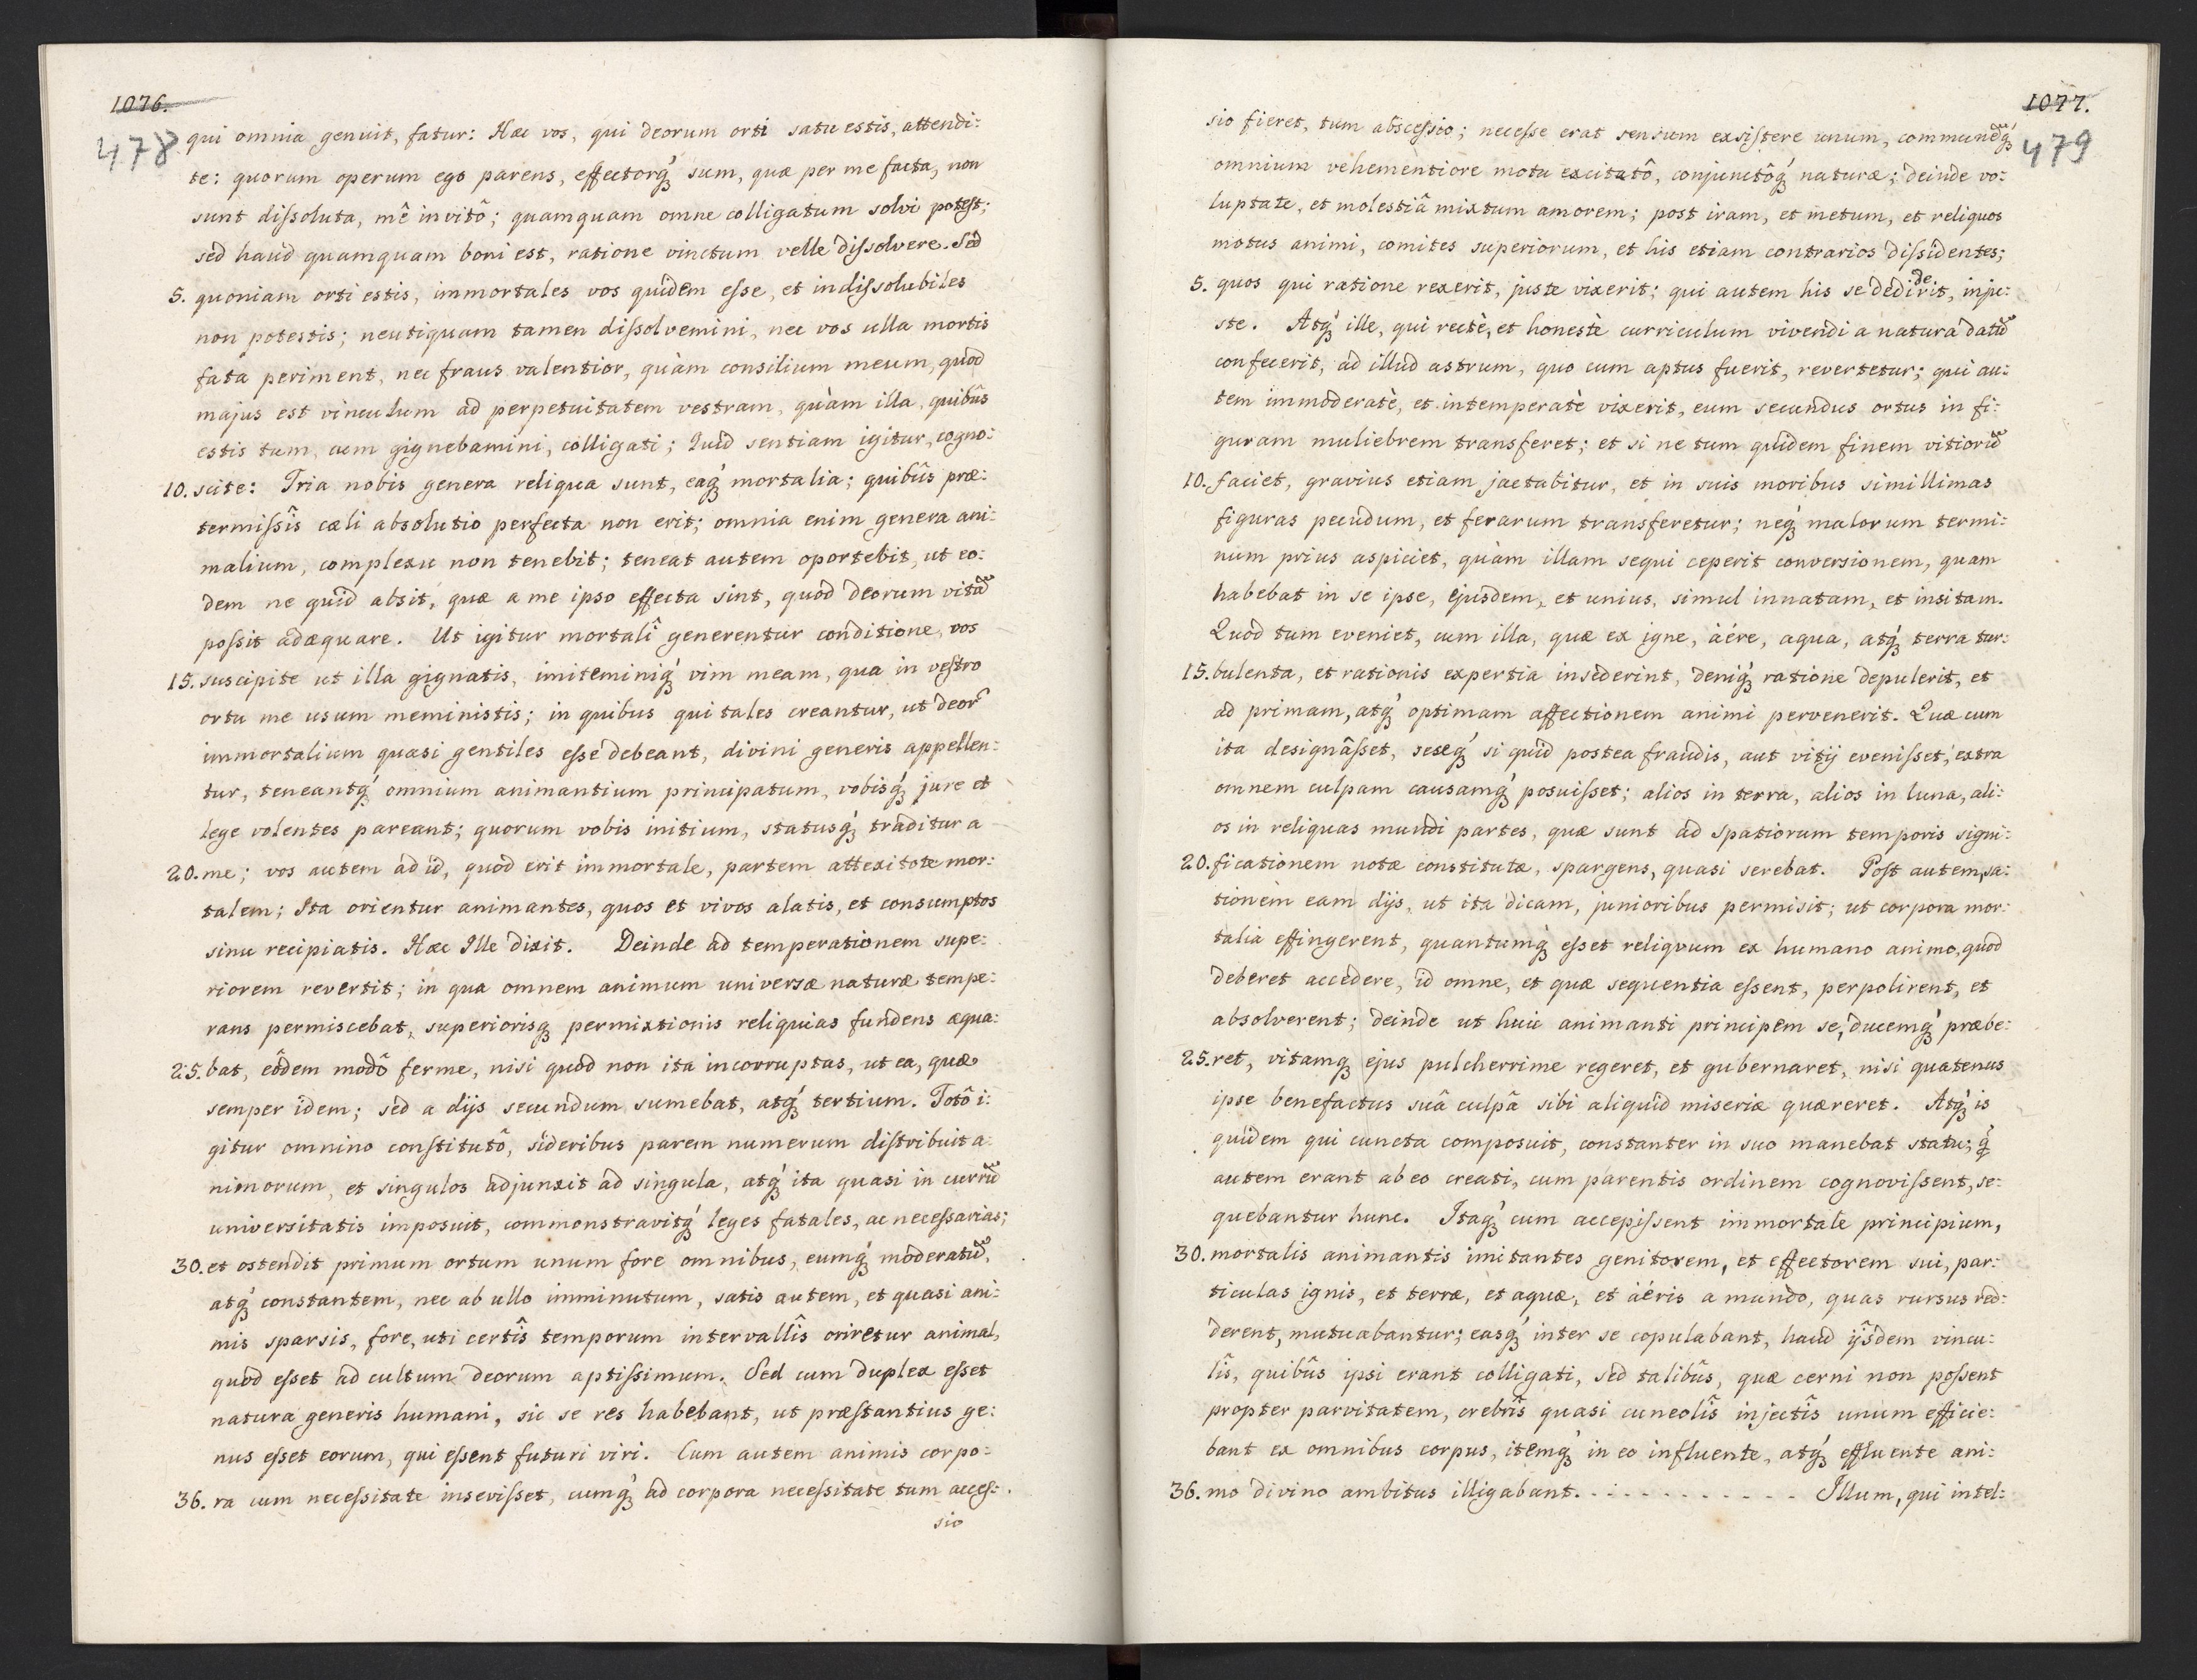 1076.
478
qui omnia genuit, fatur: Hæc vos, qui deorum orti satu estis, attendi:
te: quorum operum ego parens, effectorq́ꝫ sum, quæ per me facta, non
sunt dissoluta, mê invitô; quamquam omne colligatum solvi potest;
sed haud quamquam boni est, ratione vinctum velle dissolvere. Sed
5. quoniam orti estis, immortales vos quidem esse, et indissolubiles
non potestis; neutiquam tamen dissolvemini, nec vos ulla mortis
fata periment, nec fraus valentior, quàm consilium meum, quod
majus est vinculum ad perpetuitatem vestram, quàm illa, quibûs
estis tum, cum gignebamini, colligati; Quid sentiam igitur, cogno:
10. scite: Tria nobis genera reliqua sunt, eaq́ꝫ mortalia; quibûs præ:
termissîs cæli absolutio perfecta non erit; omnia enim genera ani:
malium, complexu non tenebit; teneat autem oportebit, ut eo:
dem ne quid absit, quæ a me ipso effecta sint, quod deorum vitã
possit adæquare. Ut igitur mortalî generentur conditione, vos
15. suscipite ut illa gignatis, imiteminiq́ꝫ vim meam, qua in vestro
ortu me usum meministis; in quibus qui tales creantur, ut deor̃
immortalium quasi gentiles esse debeant, divini generis appellen:
tur, teneantq́ꝫ omnium animantium principatum, vobisq́ꝫ jure et
lege volentes pareant; quorum vobis initium, statusq́ꝫ traditur a
20. me; vos autem ad id, quod erit immortale, partem attexitote mor:
talem; Ita orientur animantes, quos et vivos alatis, et consumptos
sinu recipiatis. Hæc Ille dixit. Deinde ad temperationem supe:
riorem revertit; in qua omnem animum universæ naturæ tempe:
rans permiscebat, superiorisqꝫ permixtionis reliquias fundens æqua:
25. bat, eôdem modô ferme, nisi quod non ita incorruptas, ut ea, quæ
semper idem; sed a dijs secundum sumebat, atq́ꝫ tertium. Totô i:
gitur omnino constitutô, sideribus parem numerum distribuit a:
nimorum, et singulos adjunxit ad singula, atq́ꝫ ita quasi in currũ
universitatis imposuit, commonstravitq́ꝫ leges fatales, ac necessarias;
30. et ostendit primum ortum unum fore omnibus, eumq́ꝫ moderatũ,
atq́ꝫ constantem, nec ab ullo imminutum, satis autem, et quasi ani:
mis sparsis, fore, uti certîs temporum intervallîs oriretur animal,
quod esset ad cultum deorum aptissimum. Sed cum duplex esset
natura generis humani, sic se res habebant, ut præstantius ge:
nus esset eorum, qui essent futuri viri. Cum autem animis corpo:
36. ra cum necessitate insevisset, cumq́ꝫ ad corpora necessitate tum acces:
sio
1077.
479
sio fieret, tum abscessio; necesse erat sensum exsistere unum, communẽq́ꝫ
omnium vehementiore motu excitatô, conjunctôq́ꝫ naturæ; deinde vo:
luptate, et molestiâ mixtum amorem; post iram, et metum, et reliquos
motus animi, comites superiorum, et his etiam contrarios dissidentes;
5. quos qui ratione rexerit, juste vixerit; qui autem his se dedirit, inju:
de
ste. Atq́ꝫ ille, qui rectè, et honestè curriculum vivendi a natura datũ
confecerit, ad illud astrum, quo cum aptus fuerit, revertetur; qui au:
tem immoderatè, et intemperatè vixerit, eum secundus ortus in fi:
guram muliebrem transferet; et si ne tum quidem finem vitiorũ
10. faciet, gravius etiam jactabitur, et in suis moribus simillimas
figuras pecudum, et ferarum transferetur; neq́ꝫ malorum termi:
num prius aspiciet, quàm illam sequi ceperit conversionem, quam
habebat in se ipse, ejusdem, et unius, simul innatam, et insitam.
Quod tum eveniet, cum illa, quæ ex igne, àére, aqua, atq́ꝫ terra tur:
15. bulenta, et rationis expertia insederint, deniq́ꝫ ratione depulerit, et
ad primam, atq́ꝫ optimam affectionem animi pervenerit. Quæ cum
ita designâsset, seseq́ꝫ si quid postea fraudis, aut vitij evenisset, extra
omnem culpam causamq́ꝫ posuisset; alios in terra, alios in luna, ali:
os in reliquas mundi partes, quæ sunt ad spatiorum temporis signi:
20. ficationem notæ constitutæ, spargens, quasi serebat. Post autem, sa:
tionem eam dijs, ut ita dicam, junioribus permisit; ut corpora mor:
talia effingerent, quantumq́ꝫ esset reliqvum ex humano animo, quod
deberet accedere, id omne, et quæ sequentia essent, perpolirent, et
absolverent; deinde ut huic animanti principem se, ducemq́ꝫ præbe:
25. ret, vitamqꝫ ejus pulcherrime regeret, et gubernaret, nisi quatenus
ipse benefactus suâ culpâ sibi aliquid miseriæ quæreret. Atq́ꝫ is
quidem qui cuncta composuit, constanter in suo manebat statu; q́
autem erant ab eo creati, cum parentis ordinem cognovissent, se:
quebantur hunc. Itaq́ꝫ cum accepissent immortale principium,
30. mortalis animantis imitantes genitorem, et effectorem sui, par:
ticulas ignis, et terræ, et aquæ, et àéris a mundo, quas rursus red:
derent, mutuabantur; easq́ꝫ inter se copulabant, haud ijsdem vincu:
lîs, quibûs ipsi erant colligati, sed talibûs, quæ cerni non possent
propter parvitatem, crebrîs quasi cuneolîs injectîs unum efficie:
bant ex omnibus corpus, itemq́ꝫ in eo influente, atq́ꝫ effluente ani:
36. mo divino ambitus illigabant. - - - - - - - - - - - - Illum, qui intel: